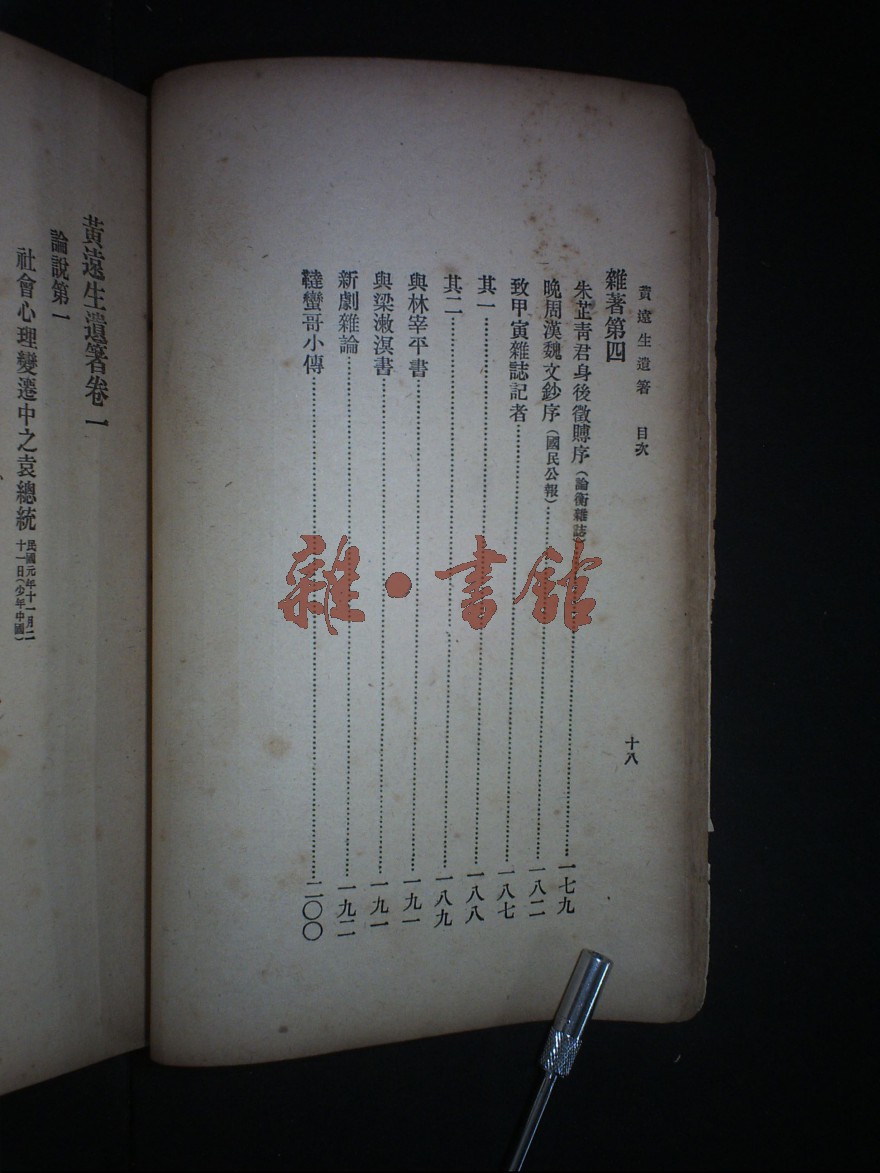 黃遠生遺著 目次 十八
雜著第四
朱芷靑君身後徵賻序(論衡雜誌)……一七九
晚周漢魏文鈔序(國民公報)……一八二
致甲寅雜誌記者……一八七
其一……一八八
其二……一八九
與林宰平書……一九一
與梁漱溟書……一九一
新劇雜論……一九二
韃蠻哥小傳……二〇〇
黃遠生遺著卷一
論說第一
社會心理變遷中之袁總統 民國元年十一月二十一日(少年中國)
雜·書館